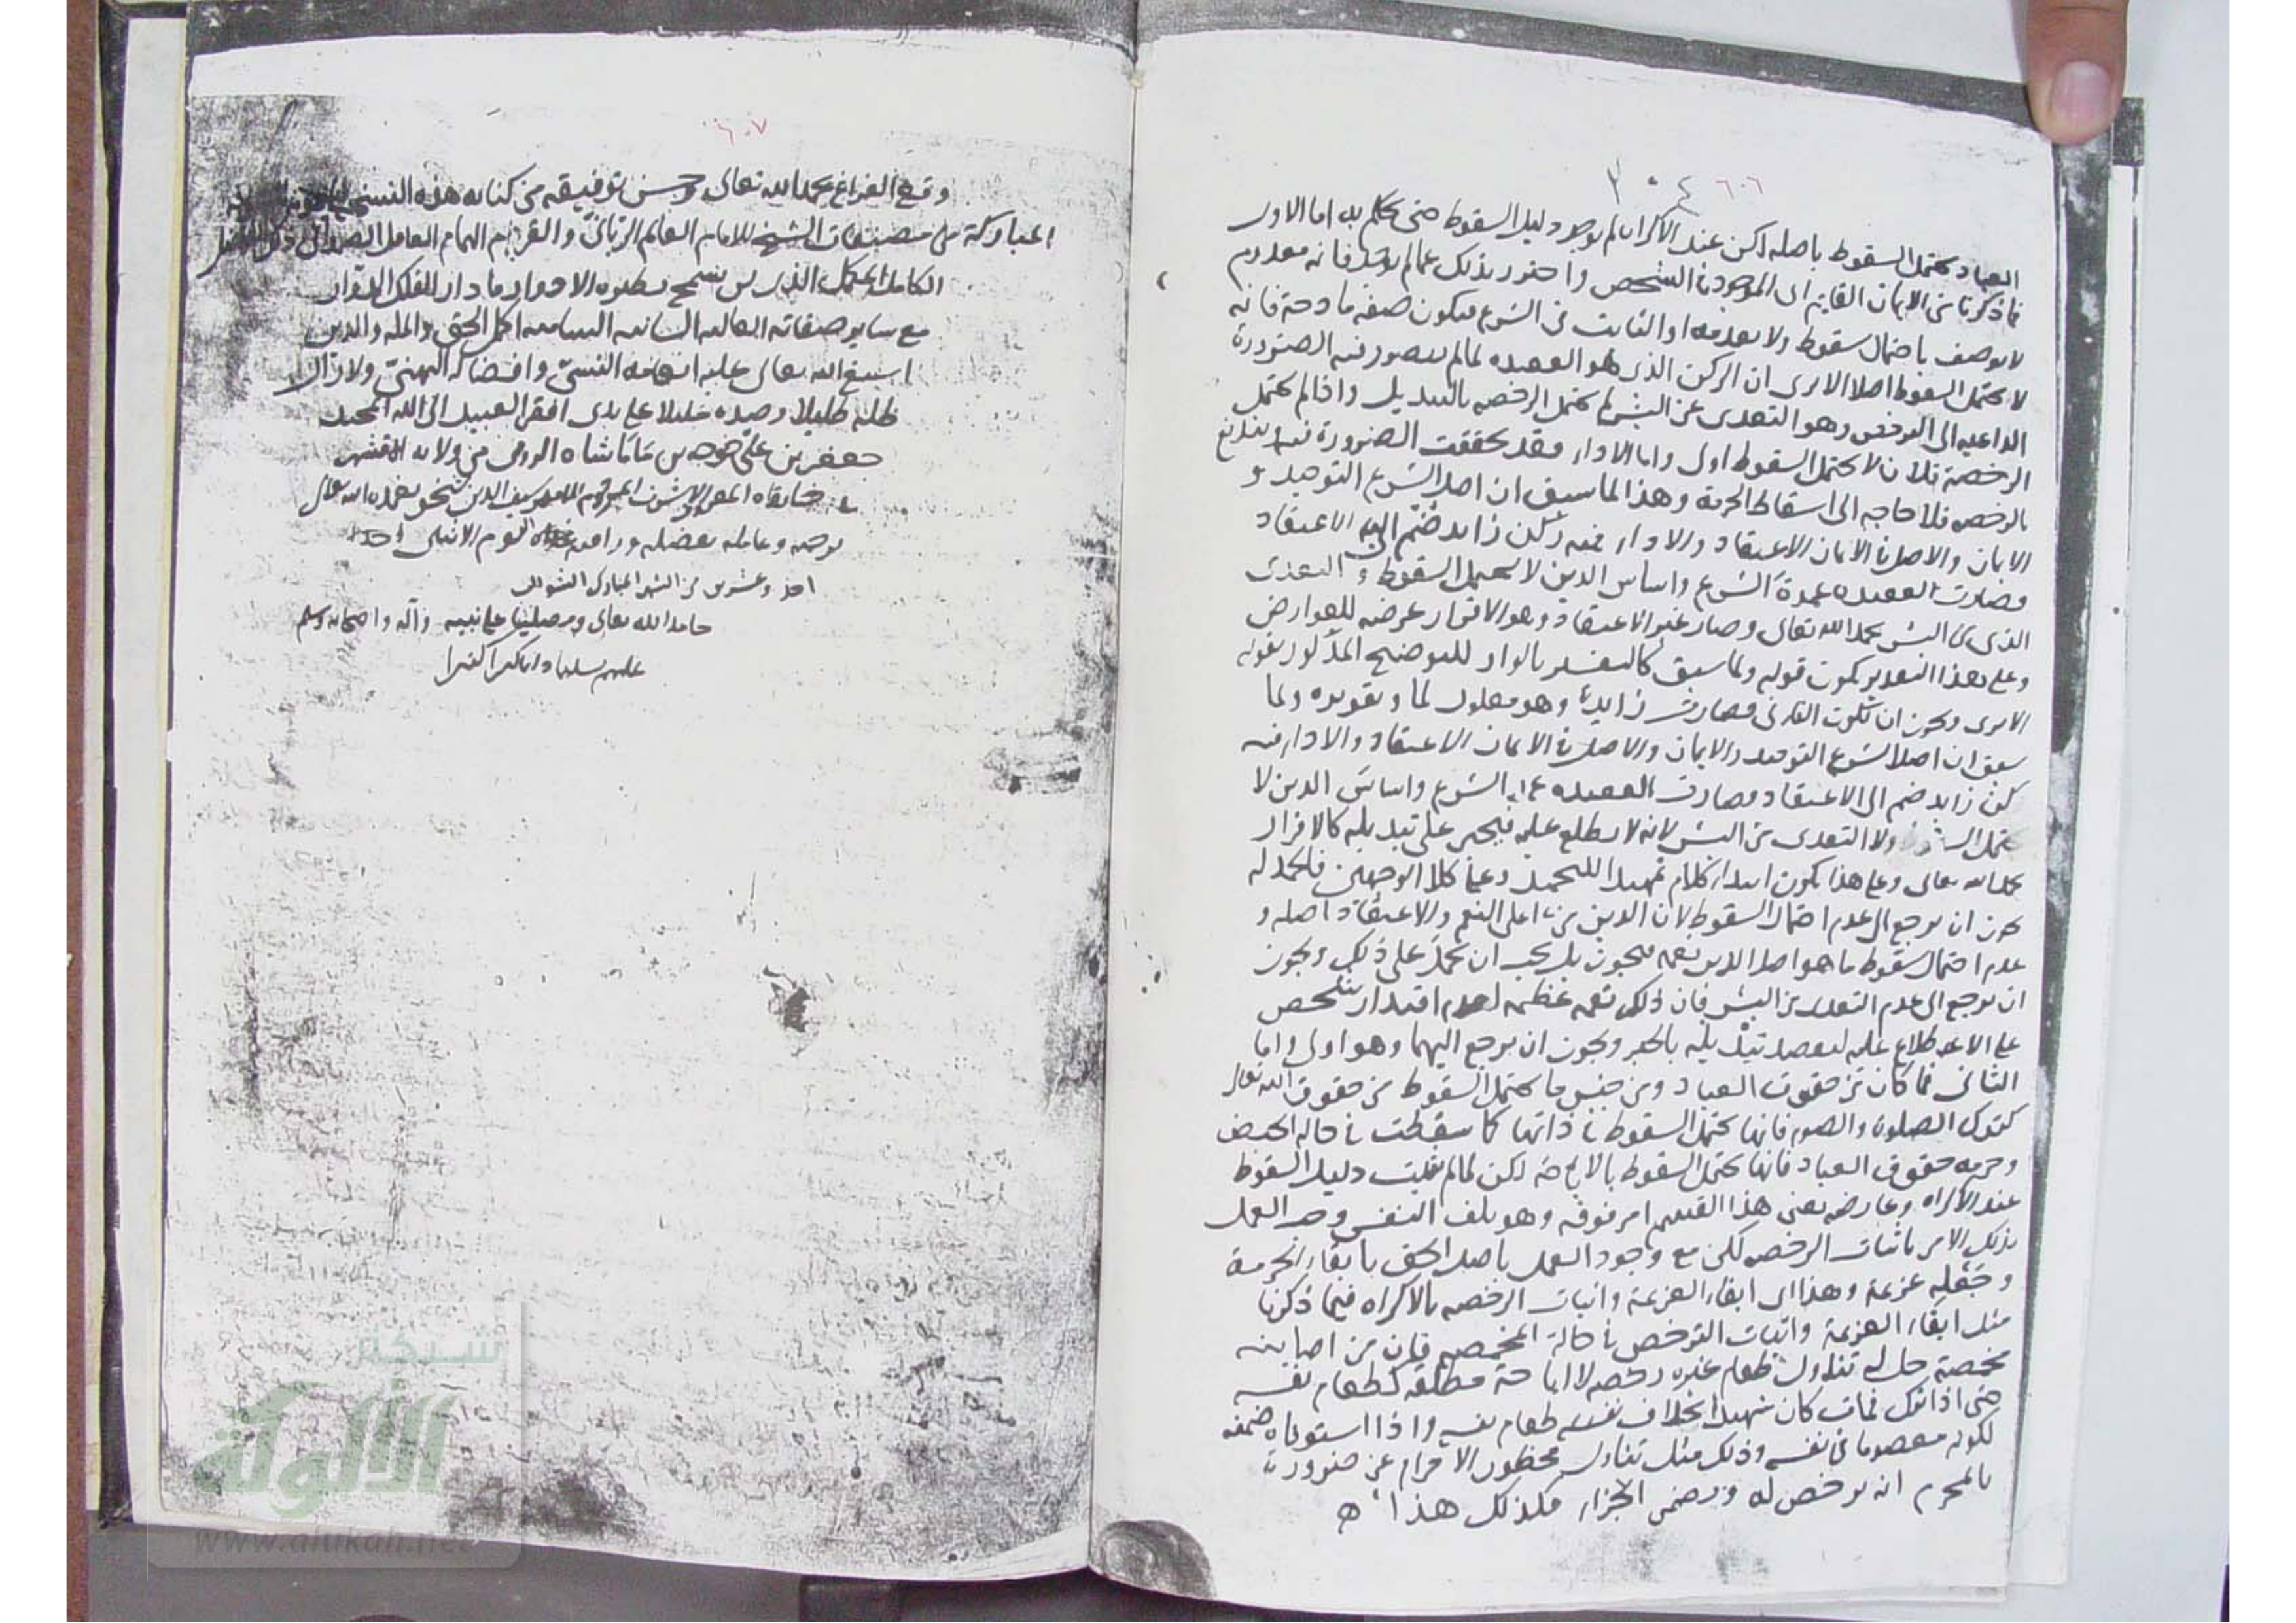 ٦٠٦
٣٠٤
العباد يحتمل السقوط باصله لكن عند الاكراه لم يوجد دليل السقوط حتى يحكم به اما الاول
فما ذكرنا من الايمان القايم اى الموجود فى الشخص واحترز بذلك عما لم يوجد فانه معدوم
لا يوصف باحتمال سقوط ولا بعدمه او الثابت فى الشرع فيكون صفة مادحة فانه
لا يحتمل السقوط اصلا الا يرى ان الركن الذى هو العقيده لما لم يتصور فيه الضرورة
الداعيه الى الترخص وهو التعدى عن البشر لم يحتمل الرخصه بالتبديل واذا لم يحتمل
الرخصة فلان لا يحتمل السقوط اولى واما الاداء فقد تحققت الضرورة فيه
بالرخصه فلا حاجه الى اسقاط الحرمة وهذا لما سبق ان اصل الشرع التوحيد و
الايمان والاصل فى الايمان الاعتقاد والاداء فيه ركن زايد ضم الى الاعتقاد
فصارت العقيده عمدة الشرع واساس الدين لا يحتمل السقوط و التعدى
الذى من البشر بحمد الله تعالى وصار غير الاعتقاد وهو الاقرار عرضه للعوارض
وعلى هذا التقدير يكون قوله ولما سبق كالتفسير بالواو للتوضيح المذكور بقوله
الا يرى ويجوز ان تكون الفاء فى فصارت زايدة وهو معلول لما وتقريره ولما
سبق ان اصل الشرع التوحيد والايمان والاصل فى الايمان الاعتقاد والاداء فيه
ركن زايد ضم الى الاعتقاد فصارت العقيده عمدة الشرع واساس الدين لا
يحتمل ولا التعدى من البشر لانه لا يطلع عليه فيجبر على تبديله كالاقرار
بحمد الله تعالى وعلى هذا يكون ابتداء كلام تمهيدا للتحميد وعلى كلا الوجهين فالحمد له
يجوز ان يرجع الى عدم احتمال السقوط لان الدين من اعلى النعم والاعتقاد اصله و
عدم احتمال سقوط ما هو اصل الدين نعمه فيجوز بل يجب ان يحمد على ذلك ويجوز
ان يرجع الى عدم التعدى من البشر فان ذلك نعمه عظيمه لعدم اقتدار شخص
على الاطلاع عليه ليقصد تبديله بالجبر ويجوز ان يرجع اليهما وهو اولى واما
الثانى فما كان من حقوق العباد ومن جنس ما يحتمل السقوط من حقوق الله تعالى
كترك الصلوة والصوم فانها يحتمل السقوط فى ذاتها كما سقطت فى حالة الحيض
وحرمه حقوق العباد فانها يحتمل السقوط بالاباحة لكن لما لم يثبت دليل السقوط
عند الاكراه وعارضه يعنى هذا القسم امر فوقه وهو تلف النفس وجب العمل
بذلك الامر باثبات الرخصه لكن مع وجود العمل باصل الحق بابقاء الحرمة
وجعله عزيمة وهذا اى ابقاء العزيمة واثبات الرخصه بالاكراه فيما ذكرنا
مثل ابقاء العزيمة واثبات الترخص فى حالة المخمصه فان من اصابته
مخمصة حل له تناول طعام غيره رخصه لا اباحة مطلقه كطعام نفسه
حتى اذا ترك فمات كان شهيدا بخلاف طعام نفسه واذا استوفاه ضمنه
لكونه معصوما فى نفسه وذلك مثل تناول محظور الاحرام عن ضرورة
بالمحرم انه يرخص له ويضمن الجزاء فكذلك هذا ه
٦٠٧
وقع الفراغ بحمد الله تعالى وحسن توفيقه من كتابه هذه النسخه
المباركة من مصنفات الشيخ الامام العالم الربانى والقرم الهمام العامل الصمدانى
الكامل المكمل الذى لن يسمح بطلوه الادوار ما دار الفلك الدوار
مع ساير صفاته العاليه السانيه الساميه اكمل الحق والمله والدين
اسبغ الله تعالى عليه انعامه السنى وافضاله الهنى ولا زال
ظله ظليلا وصيده جليلا على يدى افقر العبيد الى الله المجيد
جعفر بن على خوجه بن ماماشاه الرومى من ولايه
فى خانقاه المقر الاشرف المرحوم سيف الدين شيخو تغمده الله تعالى
برحمه وعامله بفضله ورافته اليوم الاثنين احد
احد وعشرين من الشهر المبارك الشوال
حامدا لله تعالى ومصليا على نبيه وآله واصحابه وسلم
عليهم تسليما دايما كثيرا كثيرا
شبكة
الألوكة
www.alukah.net